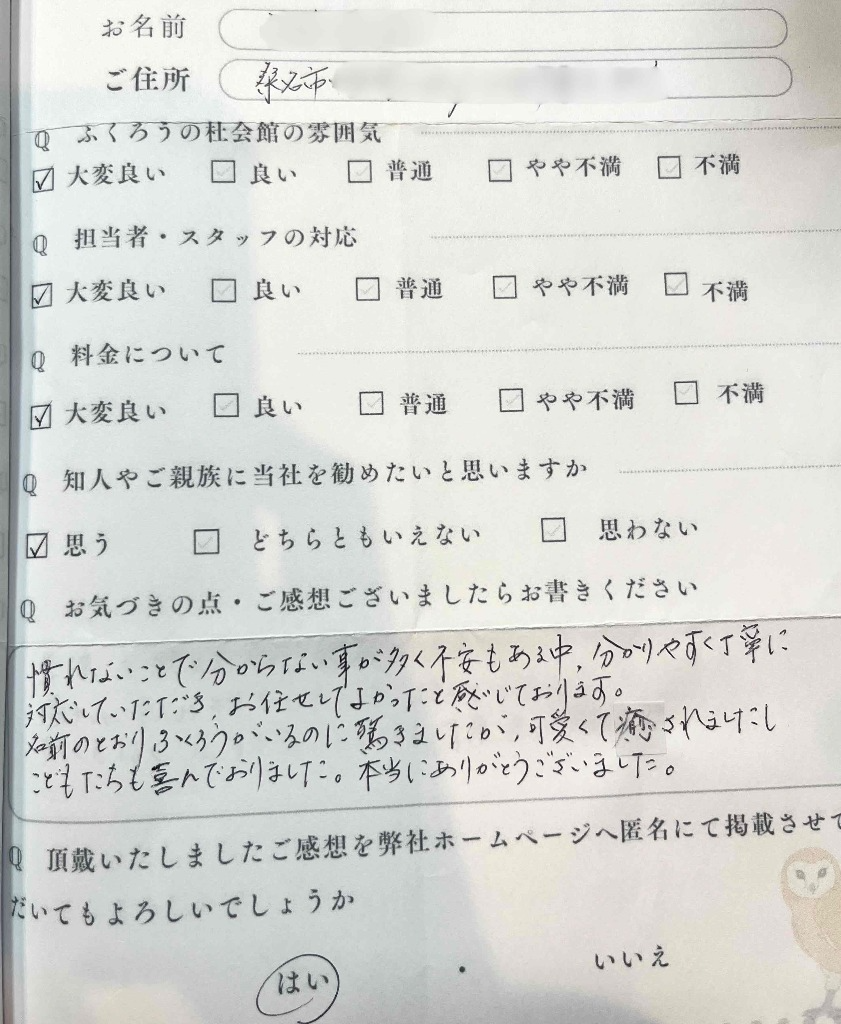 お名前
ご住所 桑名市
Q ふくろうの杜会館の雰囲気
大変良い 良い 普通 やや不満 不満
Q 担当者・スタッフの対応
大変良い 良い 普通 やや不満 不満
Q 料金について
大変良い 良い 普通 やや不満 不満
Q 知人やご親族に当社を勧めたいと思いますか
思う どちらともいえない 思わない
Q お気づきの点・ご感想ございましたらお書きください
慣れないことで分からない事が多く不安もある中、分かりやすく丁寧に
対応していただき、お任せしてよかったと感じております。
名前のとおりふくろうがいるのに驚きましたが、可愛くて癒されましたし
こどもたちも喜んでおりました。本当にありがとうございました。
Q 頂戴いたしましたご感想を弊社ホームページへ匿名にて掲載させて
だいてもよろしいでしょうか
はい ・ いいえ